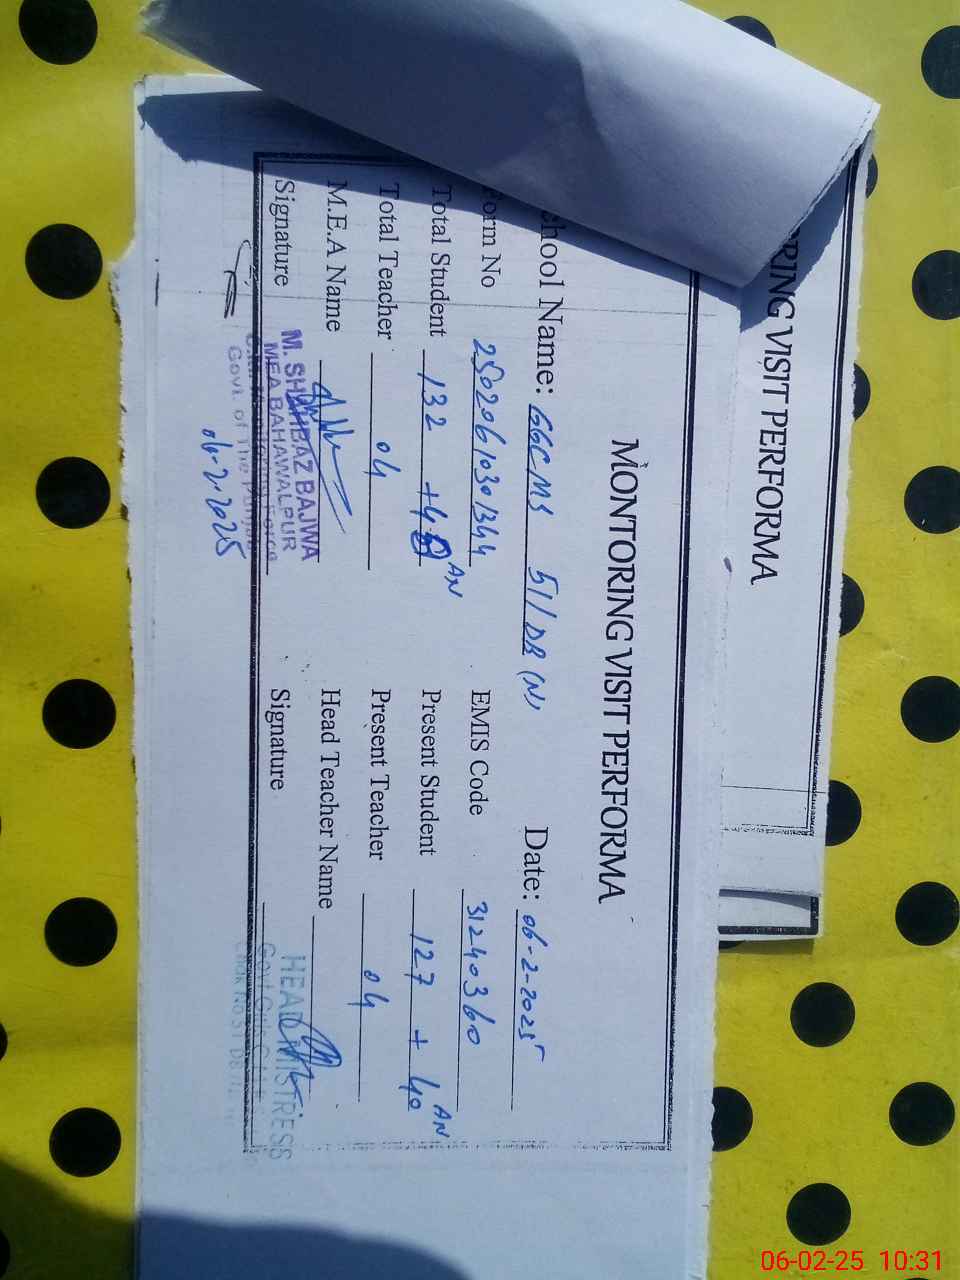 RING VISIT PERFORMA
MONTORING VISIT PERFORMA
chool Name: GGCMS 51/DB (N) Date: 06-2-2025
orm No 25020610301344 EMIS Code 31240360
Total Student 132 +4 AN Present Student 127 + 40 AN
Total Teacher 04 Present Teacher 04
M.E.A Name Head Teacher Name
Signature Signature
M. SHAHBAZ BAJWA
MEA BAHAWALPUR
Govt. of The Punjab
06-2-2025
HEADMISTRESS
06-02-25 10:31